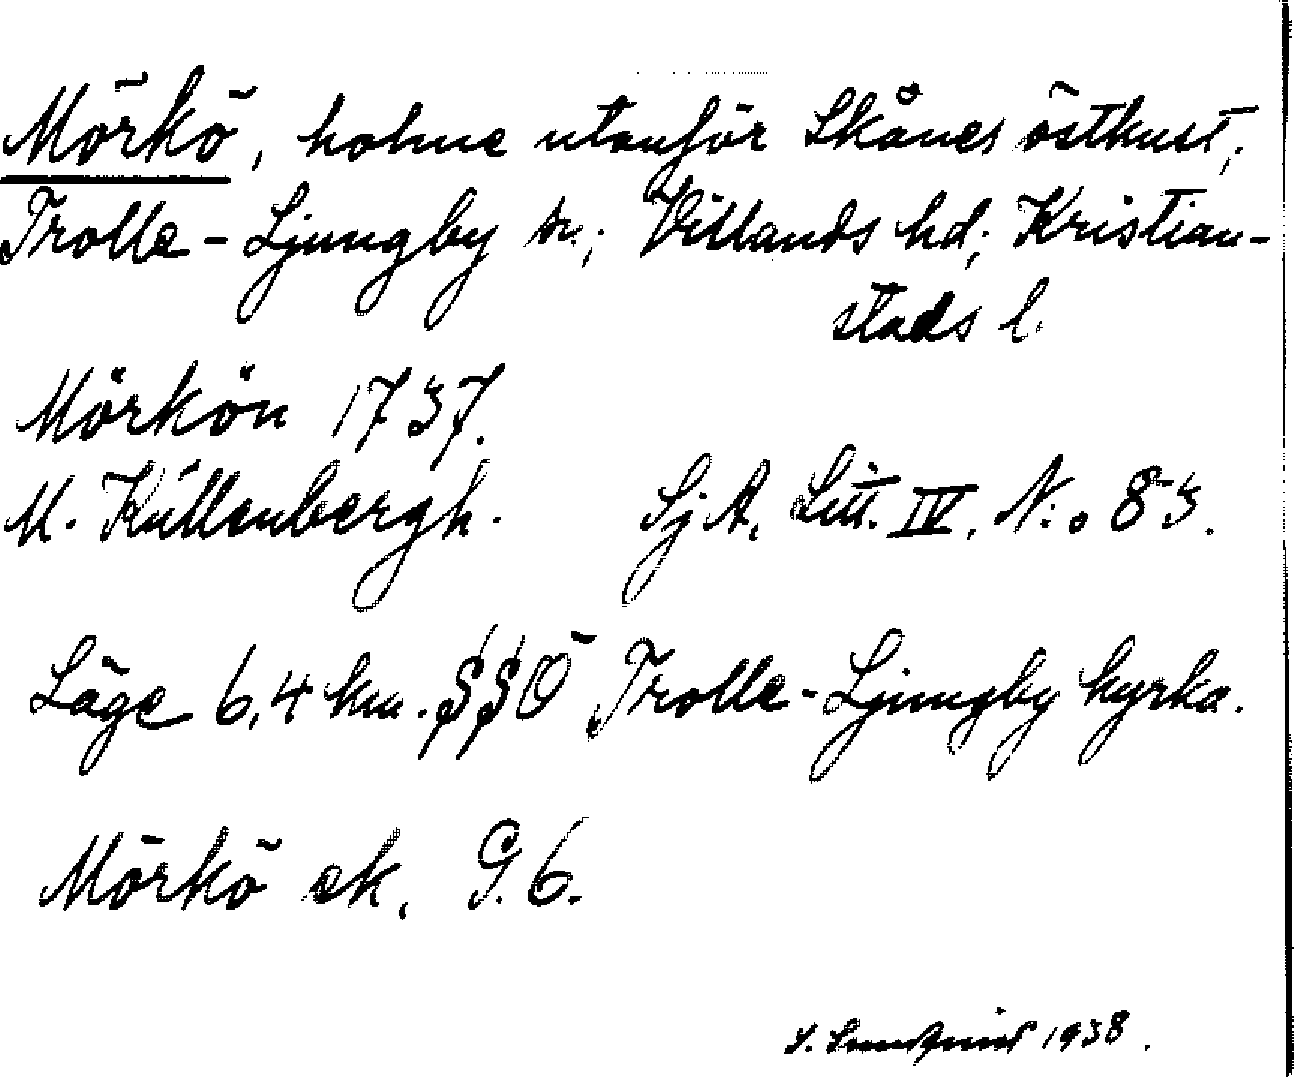 Mörkö, holme utanför Skånes östkust,
Trolle-Ljungby sn; Villands hd; Kristian-
stads l.
Mörkön 1737.
M. Küllenbergh. SjA. Litt. IV. N:o 83.
Läge 6,4 km. SSÖ Trolle-Ljungby kyrka.
Mörkö ek, G. 6.
1938.